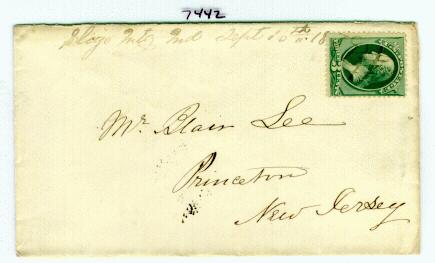 7442
Sept 10th 18
Mr Blair Lee
Princeton
New Jersey